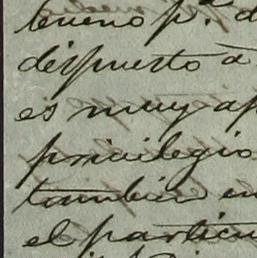 bueno p.ª d
dispuesto à
es muy ap
privilegio
tambien en
el particu